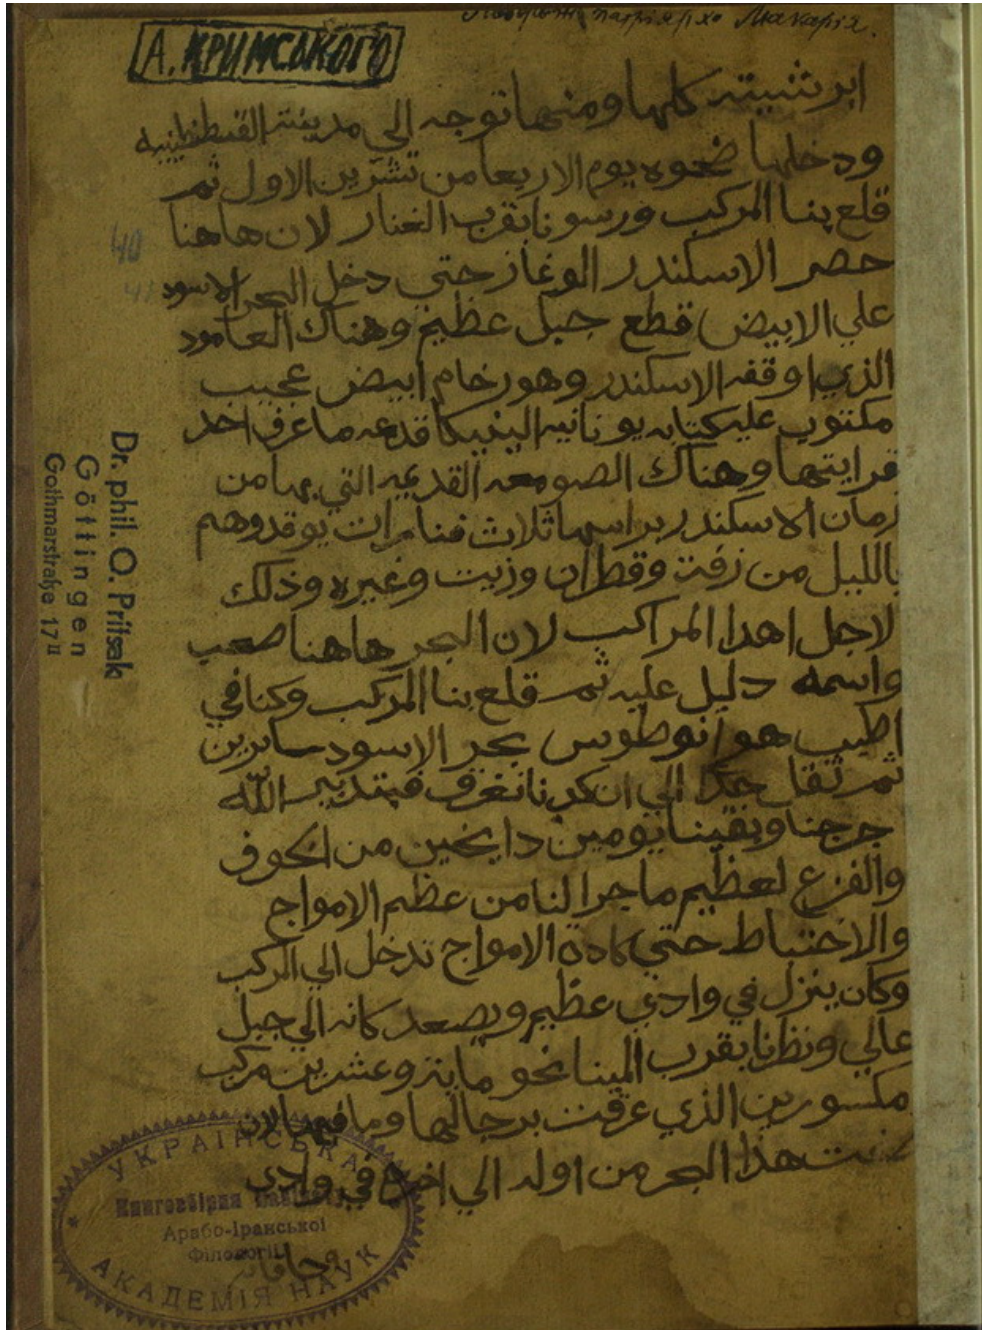 Подорож патріярха Макарія.
А. КРИМСЬКОГО
ابرشيته كلها ومنها توجه الي مدينة القسطنطينيه
ودخلها ضحوه يوم الاربعا من تشرين الاول ثم
قلع بنا المركب ورسونا بقرب الفنار لان هاهنا
حصر الاسكندر الوغاز حتي دخل البحر الاسود
علي الابيض قطع جبل عظيم وهناك العامود
الذي اوقفه الاسكندر وهو رخام ابيض عجيب
مكتوب عليه كتابه يونانيه قديمه ما عرف احد
قرايتها وهناك الصومعه القديمه التي بها من
زمان الاسكندر براسها ثلاث فنارات يوقدوهم
بالليل من زفت وقطران وزيت وغيره وذلك
لاجل اهدا المراكب لان البحر هاهنا صعب
واسمه دليل عليه ثم قلع بنا المركب وكنا في
اطيب هوا نوطوس بحر الاسود سايرين
ثم ثقل جدا الي ان كدنا نغرق فبتدبير الله
خرجنا وبقينا يومين دايخين من الخوف
والفزع لعظيم ما جرا لنا من عظم الامواج
والاختباط حتي كادة الامواج تدخل الي المركب
وكان ينزل في وادي عظيم ويصعد كانه الي جبل
عالي ونظرنا بقرب المينا نحو ماية وعشرين مركب
مكسورين الذي غرقت برجالها وما فيها لان
هذا البحر من اوله الي اخره في وادي
40
41
Dr. phil. O. Pritsak
Göttingen
Gothmarstraße 17 II
УКРАЇНСЬКА
Книгозбірня
Арабо-Іранської
Філології
АКАДЕМІЯ НАУК